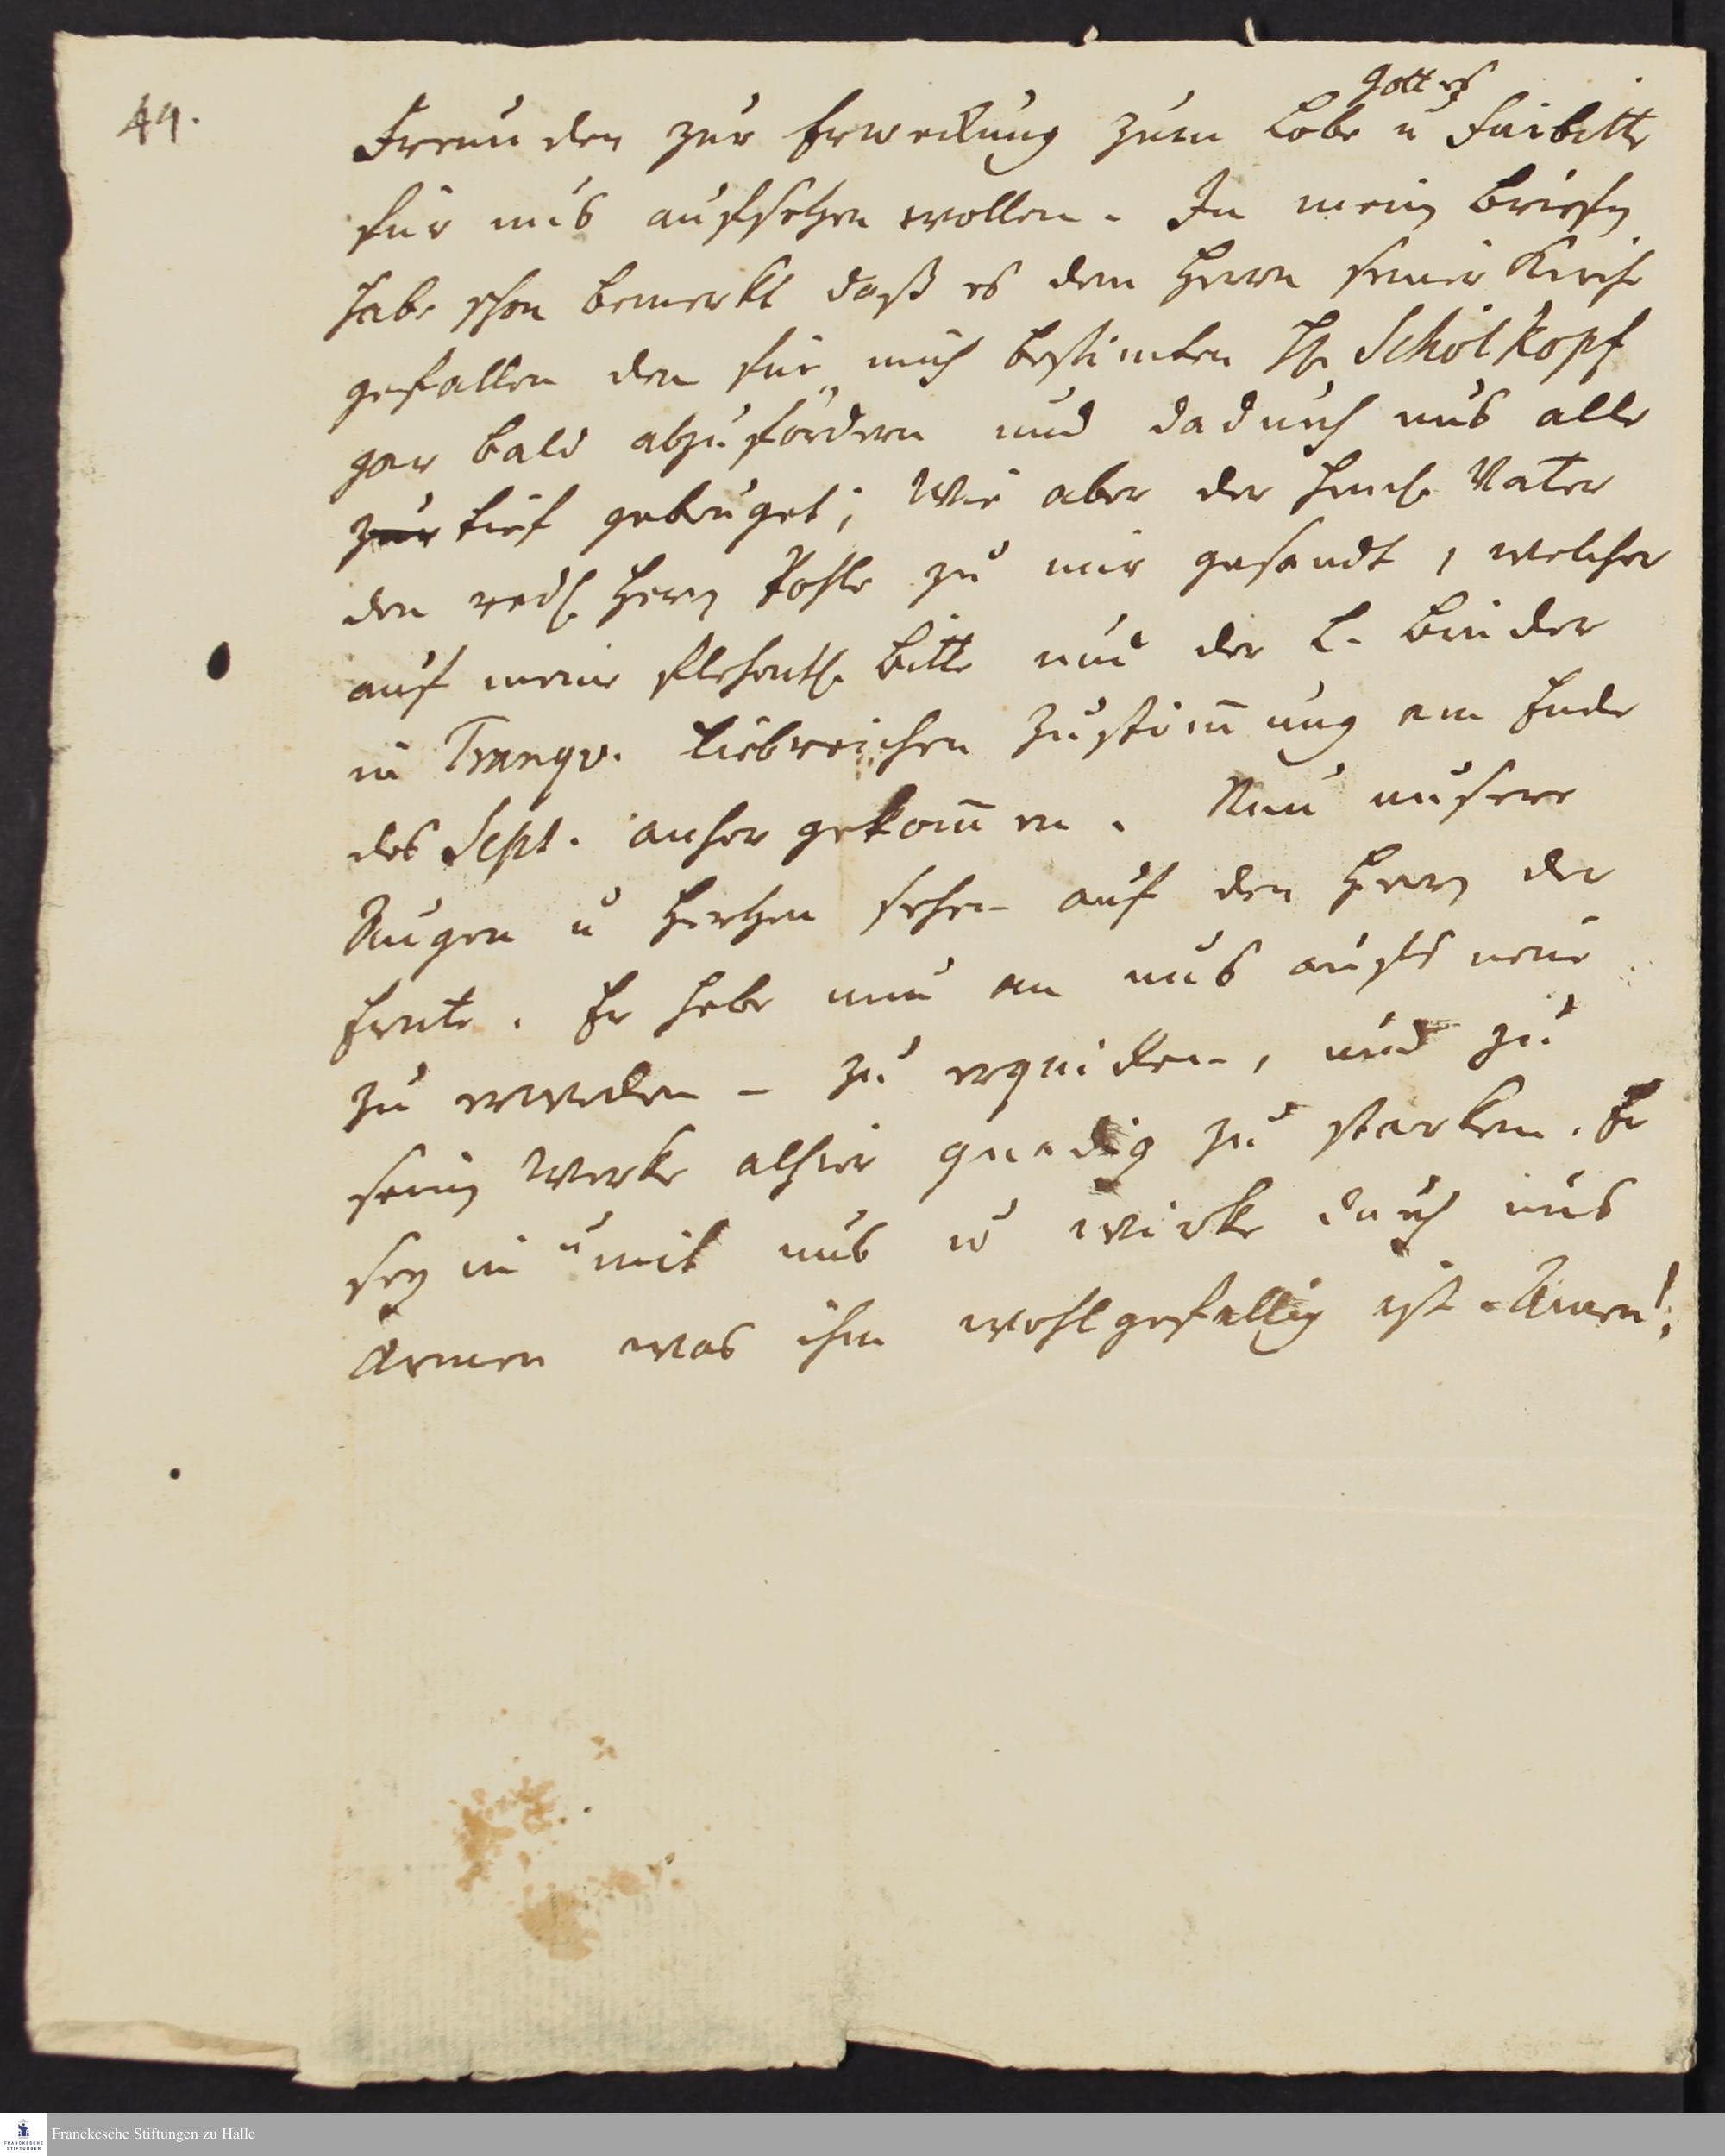 49.
Gottes
Freunden zur Erweckung zum Lobe u Fürbitte
für uns aufsetzen wollen. In mein Briefen
habe schon bemerkt daß es dem Herrn seiner Kirche
gefallen den für mich bestimten H. Schölkopf
gar bald abzufordern und dadurch uns alle
zur tief gebeuget; Wie aber der himl. Vater
den redl. Herrn Pohle zu mir gesandt, welcher
auf meine flehentl. Bitte und der l. Brüder
in Tranqv. liebreichen Zustim̄ung am Ende
des Sept. anher gekom̄en. Nun unsere
Augen u Hertzen sehen auf den Herrn der
Ernte. Er hebe nun an uns aufs neue
zu erwecken - zu erquicken, und zu
sein Werke alhier gnädig zu stärken. Er
sey in u mit uns u wirke durch uns
Armen was ihm wohlgefällig ist. Amen!
Franckesche Stiftungen zu Halle